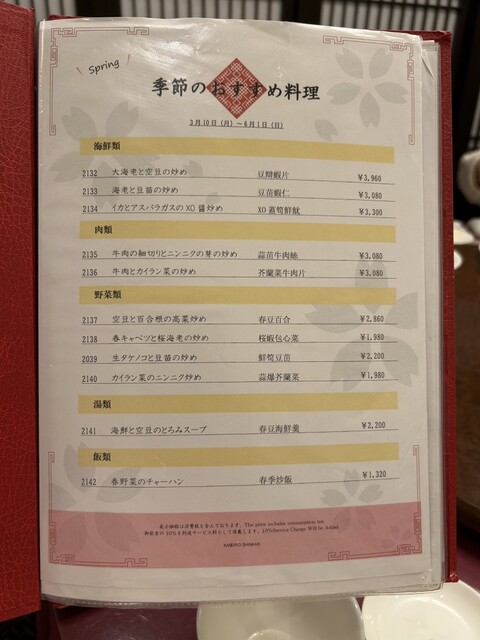 Spring
季節のおすすめ料理
3月10日（月）～6月1日（日）
海鮮類
2132 大海老と空豆の炒め 豆瓣蝦片 ¥3,960
2133 海老と豆苗の炒め 豆苗蝦仁 ¥3,080
2134 イカとアスパラガスのXO醤炒め XO蘆筍鮮魷 ¥3,300
肉類
2135 牛肉の細切りとニンニクの芽の炒め 蒜苗牛肉絲 ¥3,080
2136 牛肉とカイラン菜の炒め 芥蘭菜牛肉片 ¥3,080
野菜類
2137 空豆と百合根の高菜炒め 春豆百合 ¥2,860
2138 春キャベツと桜海老の炒め 桜蝦包心菜 ¥1,980
2039 生タケノコと豆苗の炒め 鮮筍豆苗 ¥2,200
2140 カイラン菜のニンニク炒め 蒜爆芥蘭菜 ¥1,980
湯類
2141 海鮮と空豆のとろみスープ 春豆海鮮羹 ¥2,200
飯類
2142 春野菜のチャーハン 春季炒飯 ¥1,320
表示価格は消費税を含んでおります。The price includes consumption tax
御飲食の10%を別途サービス料として頂戴します。10%Service Charge Will be Added